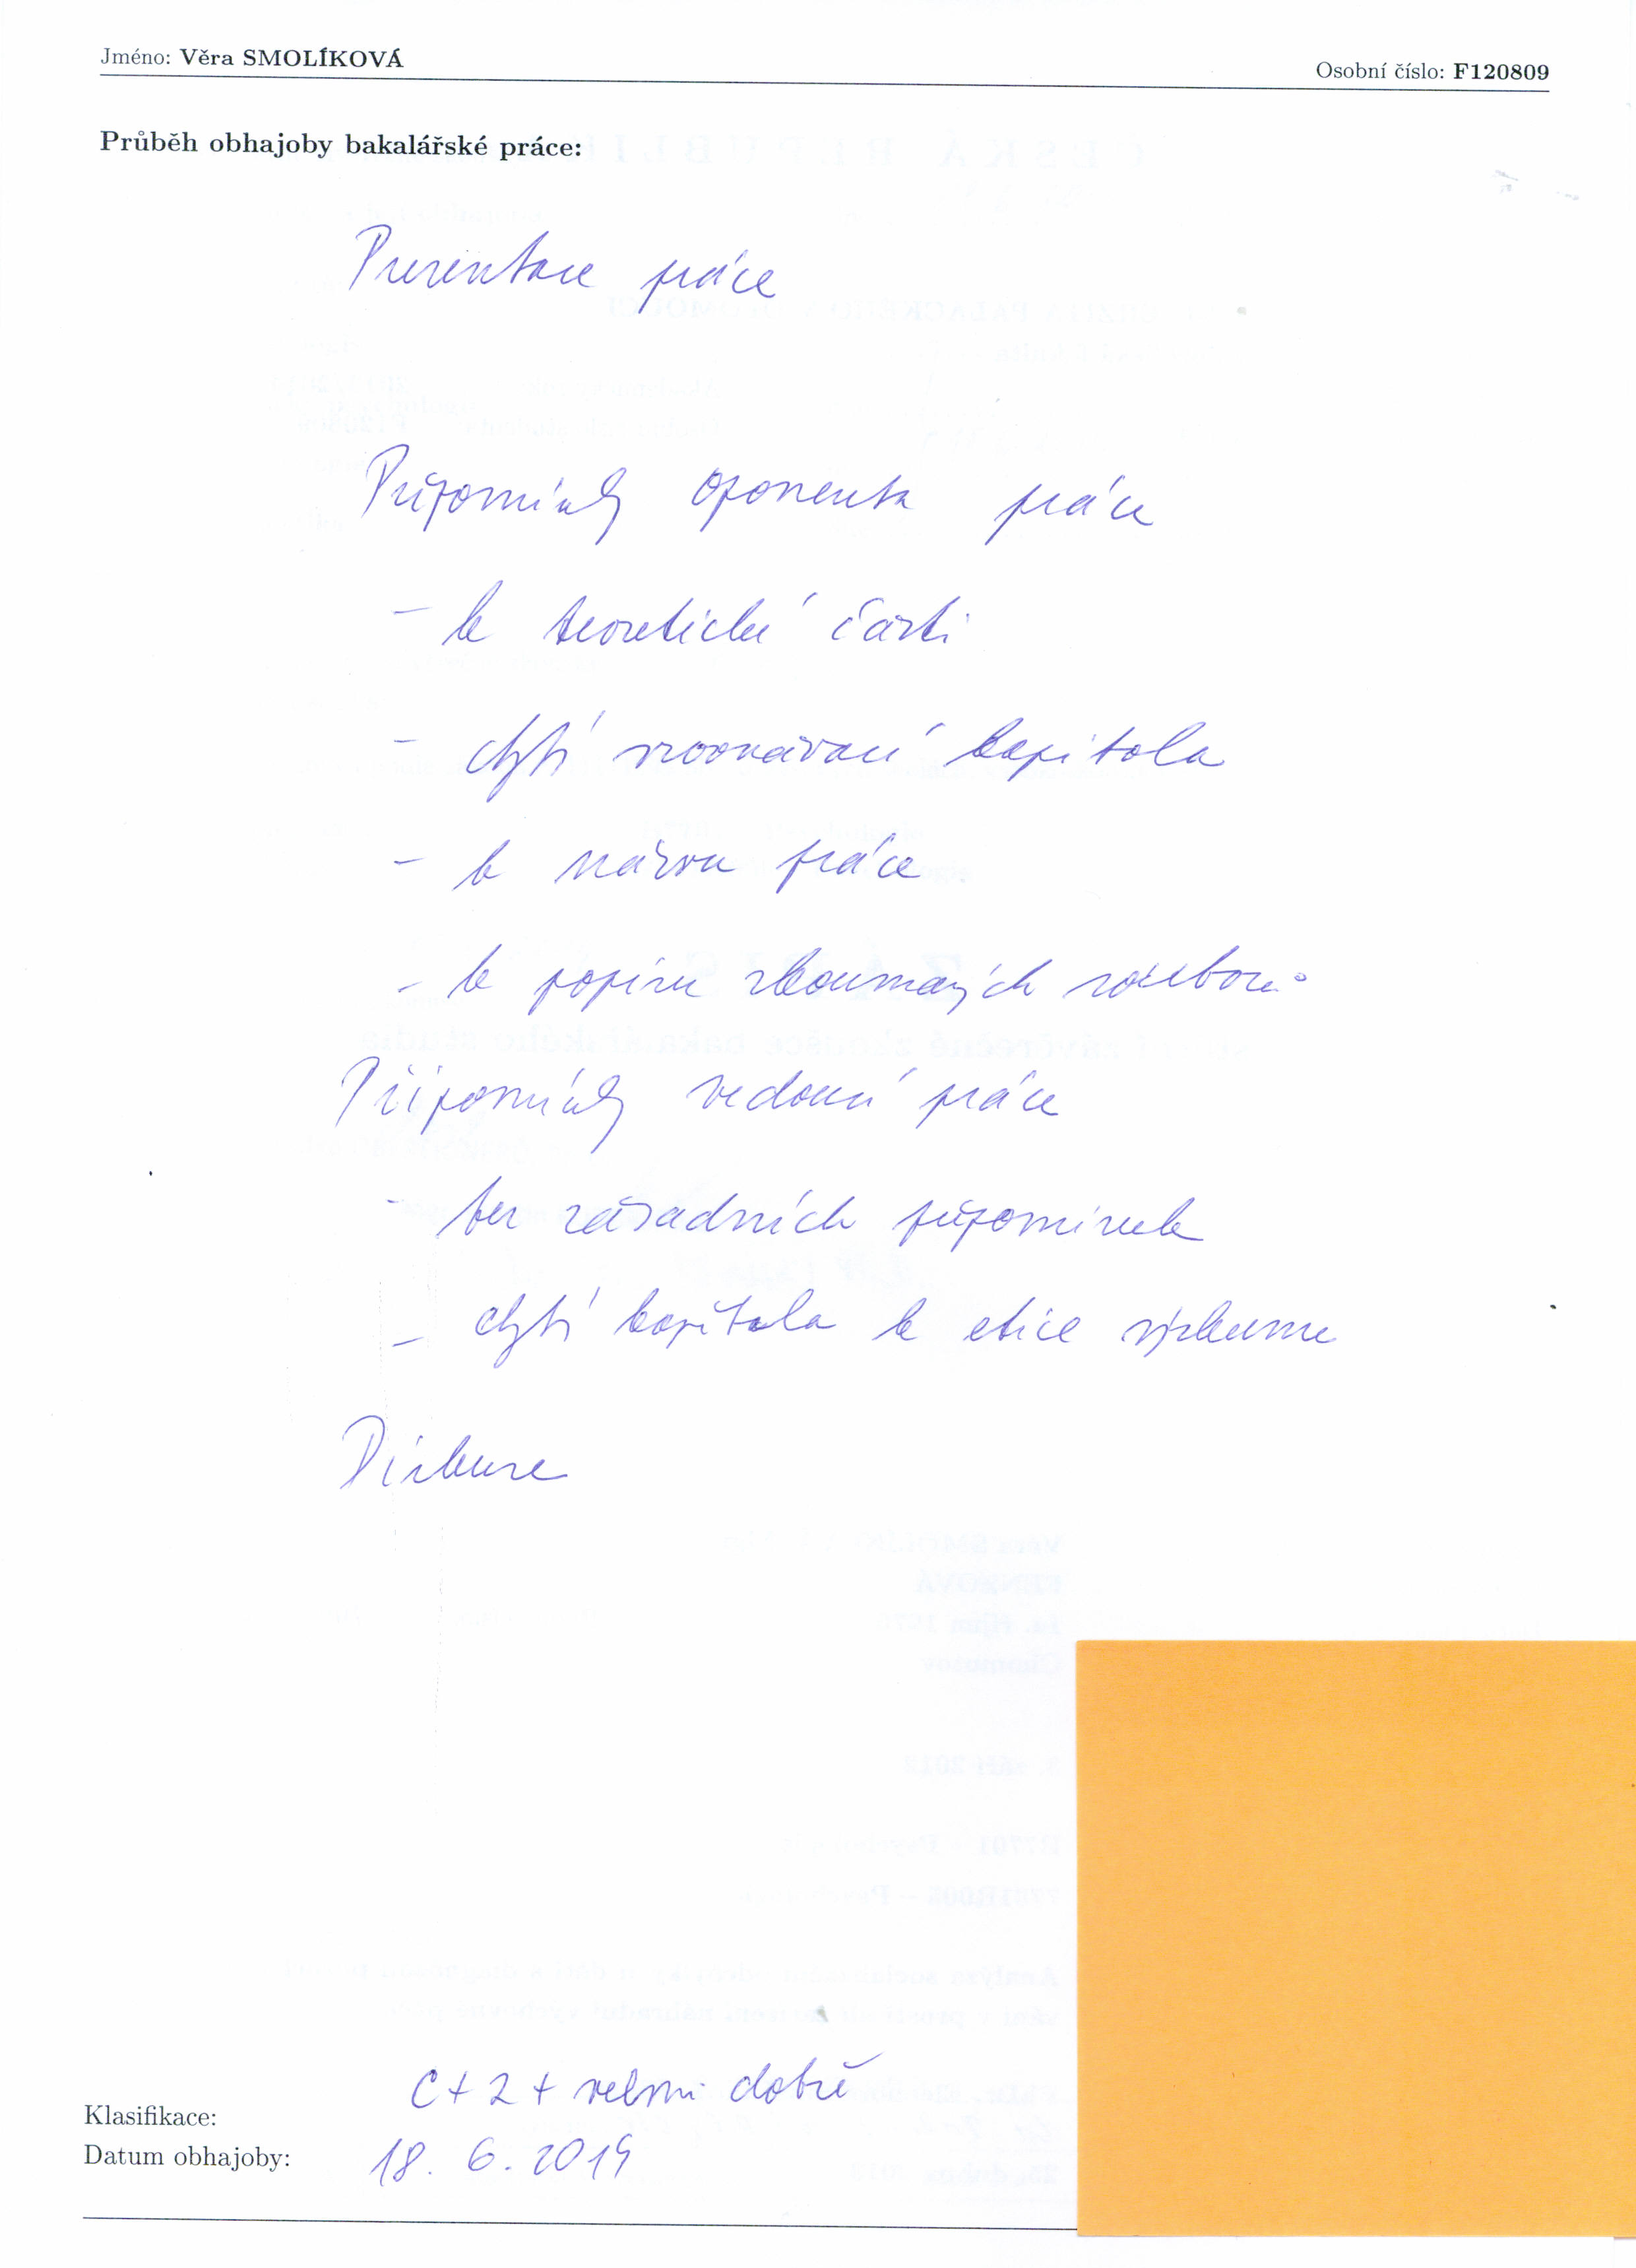 Jméno: Věra SMOLÍKOVÁ
Osobní číslo: F120809
Průběh obhajoby bakalářské práce:
Prezentace práce
Připomínky oponenta práce
- k teoretické části
- chybí srovnávací kapitola
- k názvu práce
- k popisu zkoumaných souborů
Připomínky vedoucí práce
- bez zásadních připomínek
- chybí kapitola k etice výzkumu
Diskuse
Klasifikace: C + 2 + velmi dobře
Datum obhajoby: 18. 6. 2015